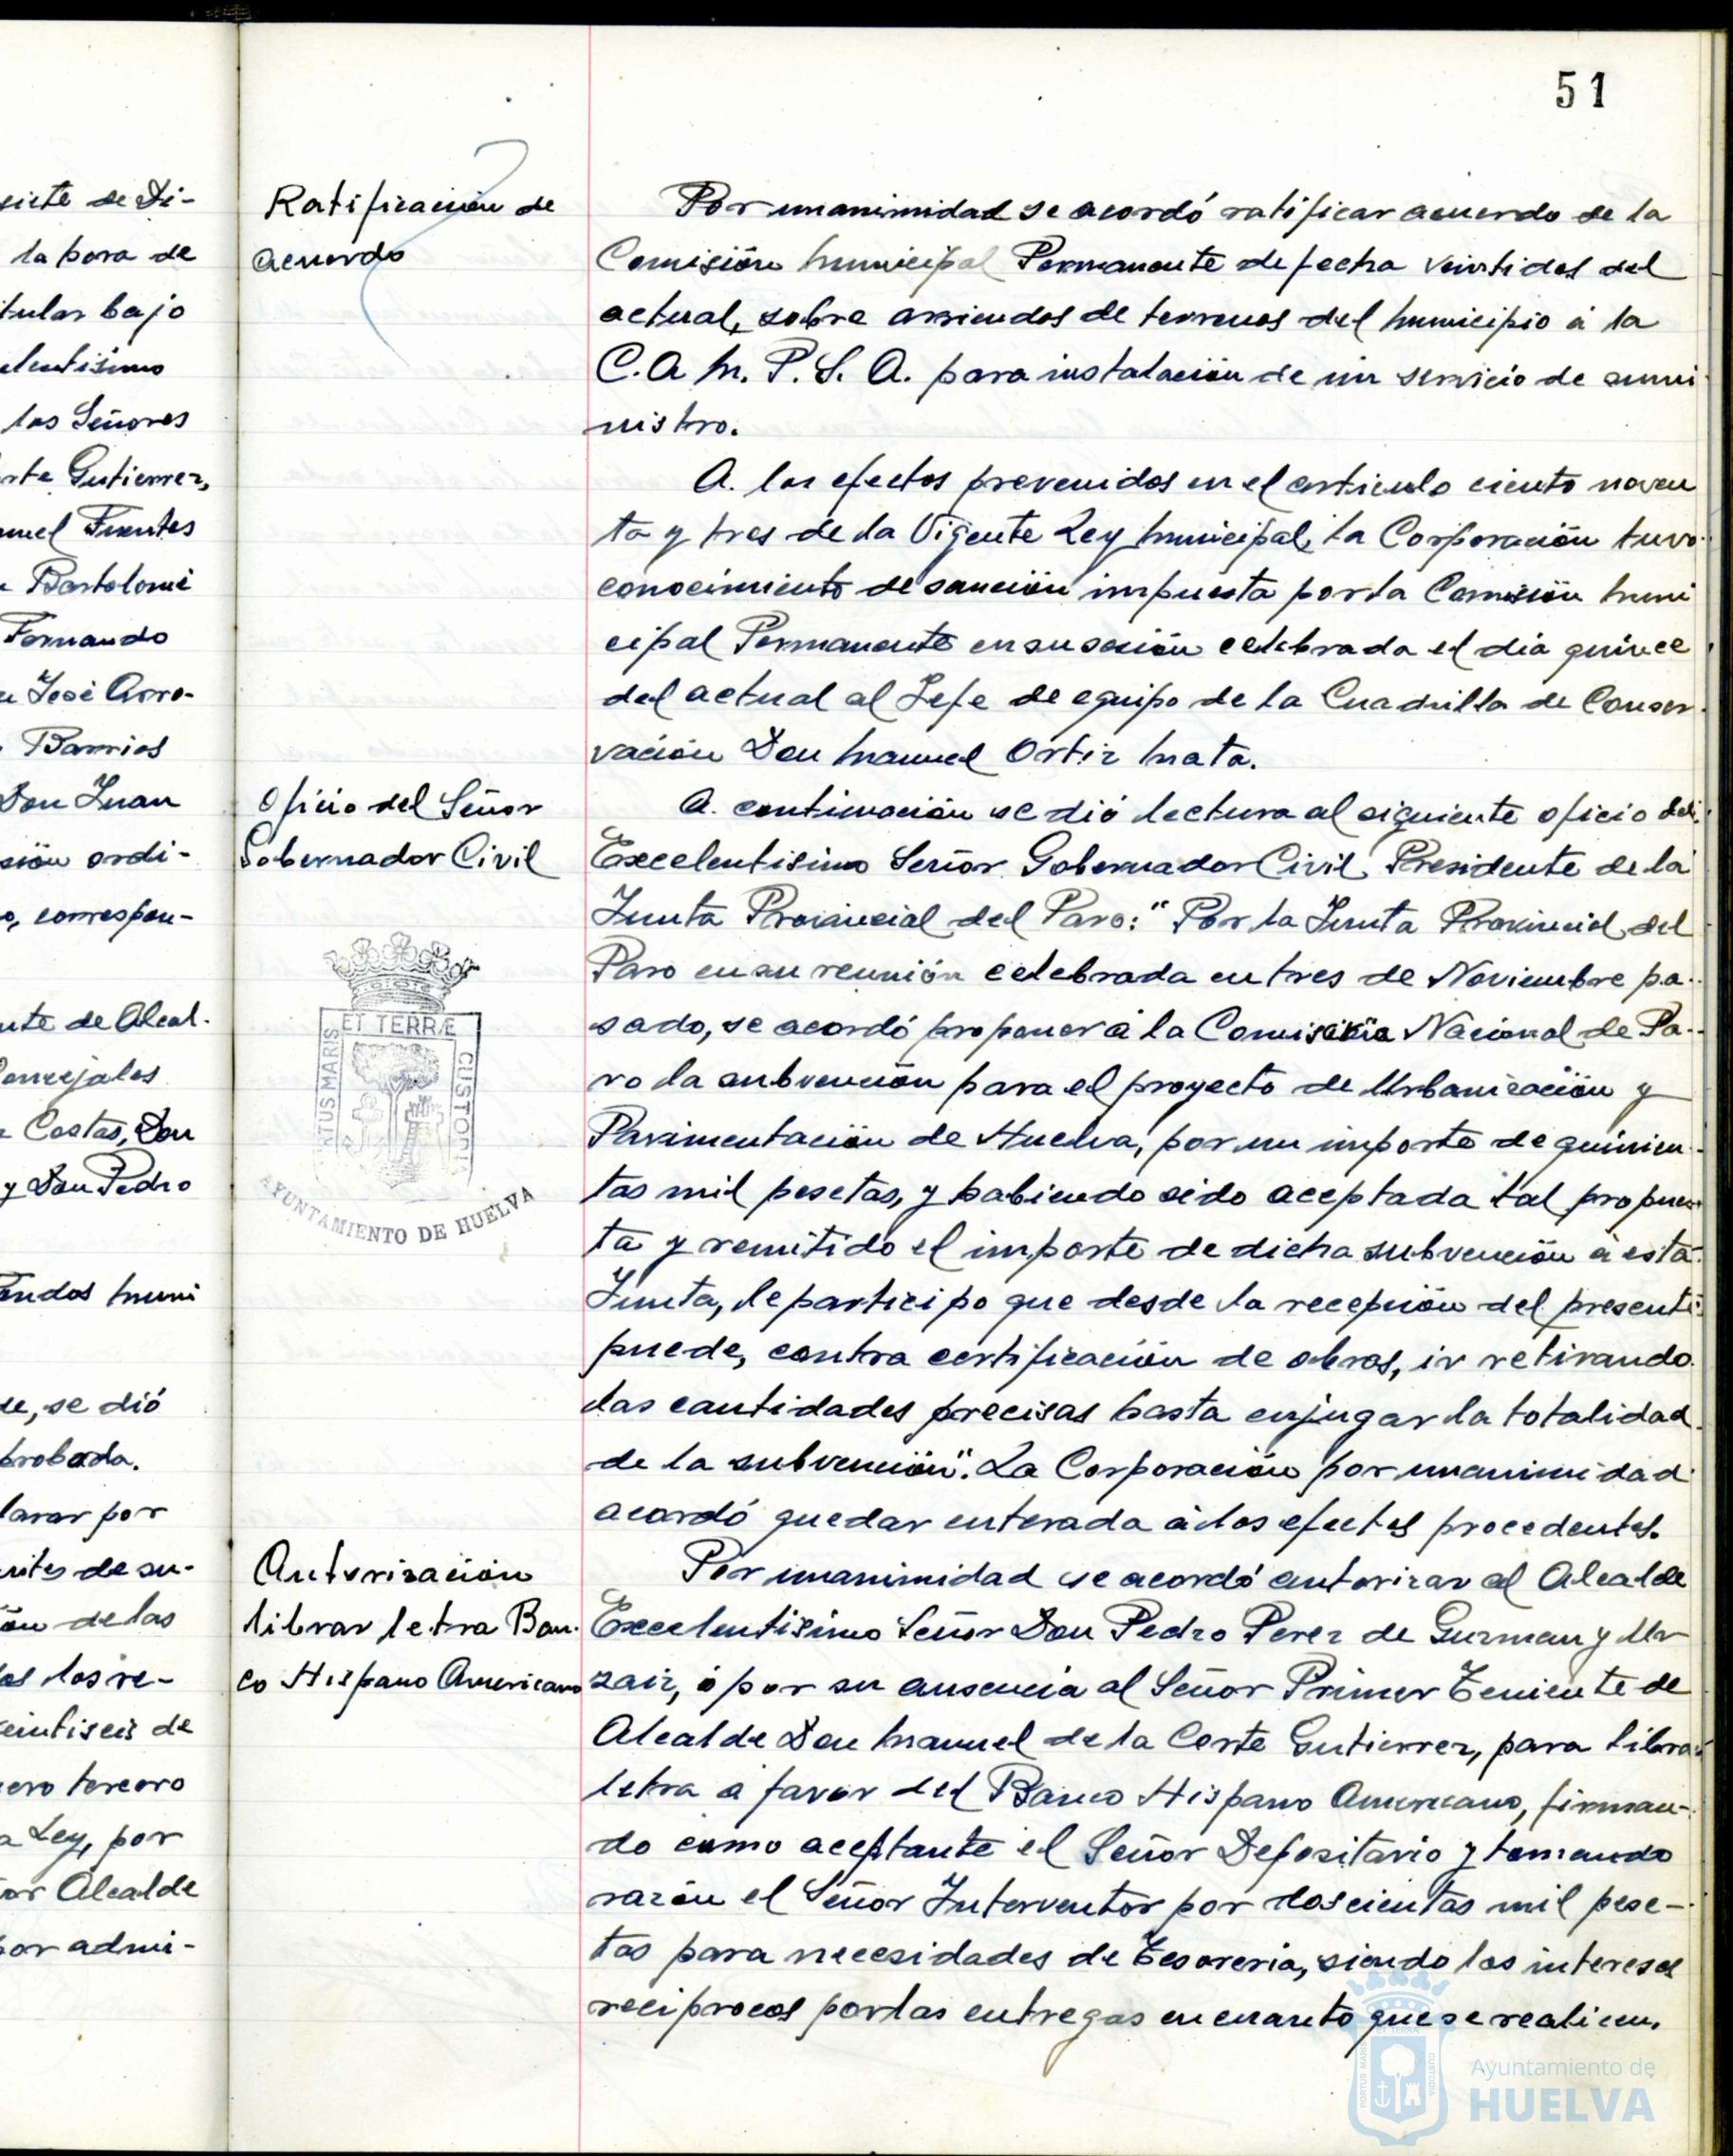 51
siete de Di-
la hora de
tular bajo
elentisimo
los Señores
rte Gutierrez,
nuel Fuentes
n Bartolomé
Fernando
n José Arro-
Barrios
Don Juan
sión ordi-
o, correspon-
nte de Alcal-
Concejales
Costas, Don
y Don Pedro
Fondos Muni
de, se dió
probada.
larar por
ntes de su-
ón de las
os los re-
veintiseis de
ero tercero
a Ley, por
ñor Alcalde
por admi-
Ratificación de
acuerdo
Por unanimidad se acordó ratificar acuerdo de la
Comisión Municipal Permanente de fecha veintidos del
actual, sobre arriendos de terrenos del Municipio á la
C.A.M.P.S.A. para instalación de un servicio de sumi
nistro.
A los efectos prevenidos en el articulo ciento noven
ta y tres de la Vigente Ley Municipal, la Corporación tuvo
conocimiento de sanción impuesta por la Comisión Muni
cipal Permanente en su sesión celebrada el dia quince
del actual al Jefe de equipo de la Cuadrilla de Conser-
vación Don Manuel Ortiz Mata.
Oficio del Señor
Gobernador Civil
A continuación se dió lectura al siguiente oficio del
Excelentisimo Señor Gobernador Civil, Presidente de la
Junta Provincial del Paro: "Por la Junta Provincial del
Paro en su reunión celebrada en tres de Noviembre pa-
sado, se acordó proponer á la Comisión Nacional de Pa-
ro la subvención para el proyecto de Urbanización y
Pavimentación de Huelva, por un importe de quinien-
tas mil pesetas, y habiendo sido aceptada tal propues
ta y remitido el importe de dicha subvención á esta
Junta, le participo que desde la recepción del presente
puede, contra certificación de obras, ir retirando
las cantidades precisas hasta enjugar la totalidad
de la subvención". La Corporación por unanimidad
acordó quedar enterada á los efectos procedentes.
PORTUS MARIS ET TERRÆ CUSTODIA
AYUNTAMIENTO DE HUELVA
Autorización
librar letra Ban-
co Hispano Americano
Por unanimidad se acordó autorizar al Alcalde
Excelentisimo Señor Don Pedro Perez de Guzman y Ur
zaiz, ó por su ausencia al Señor Primer Teniente de
Alcalde Don Manuel de la Corte Gutierrez, para librar
letra a favor del Banco Hispano Americano, firman-
do como aceptante el Señor Depositario y tomando
razón el Señor Interventor por doscientas mil pese-
tas para necesidades de Tesoreria, siendo los intereses
reciprocos por las entregas en cuanto que se realicen.
Ayuntamiento de
HUELVA